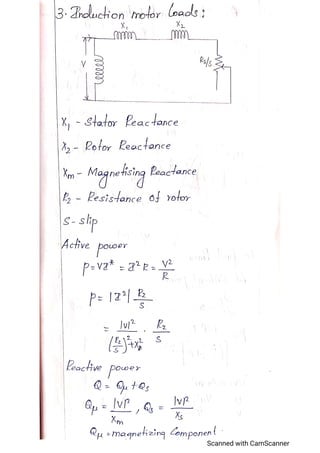 3. Induction motor Loads :
X₁ X₂
V R₂/s
X₁ - Stator Reactance
X₂ - Rotor Reactance
Xm - Magnetising Reactance
R₂ - Resistance of rotor
S - slip
Active power
P = VI* = I² R = V²/R
P = |I²| R₂/S
= |V|²/((R₂/S)² + X²) . R₂/S
Reactive power
Q = Qμ + Qs
Qμ = |V|²/Xm , Qs = |V|²/Xs
Qμ = magnetizing Component
Scanned with CamScanner